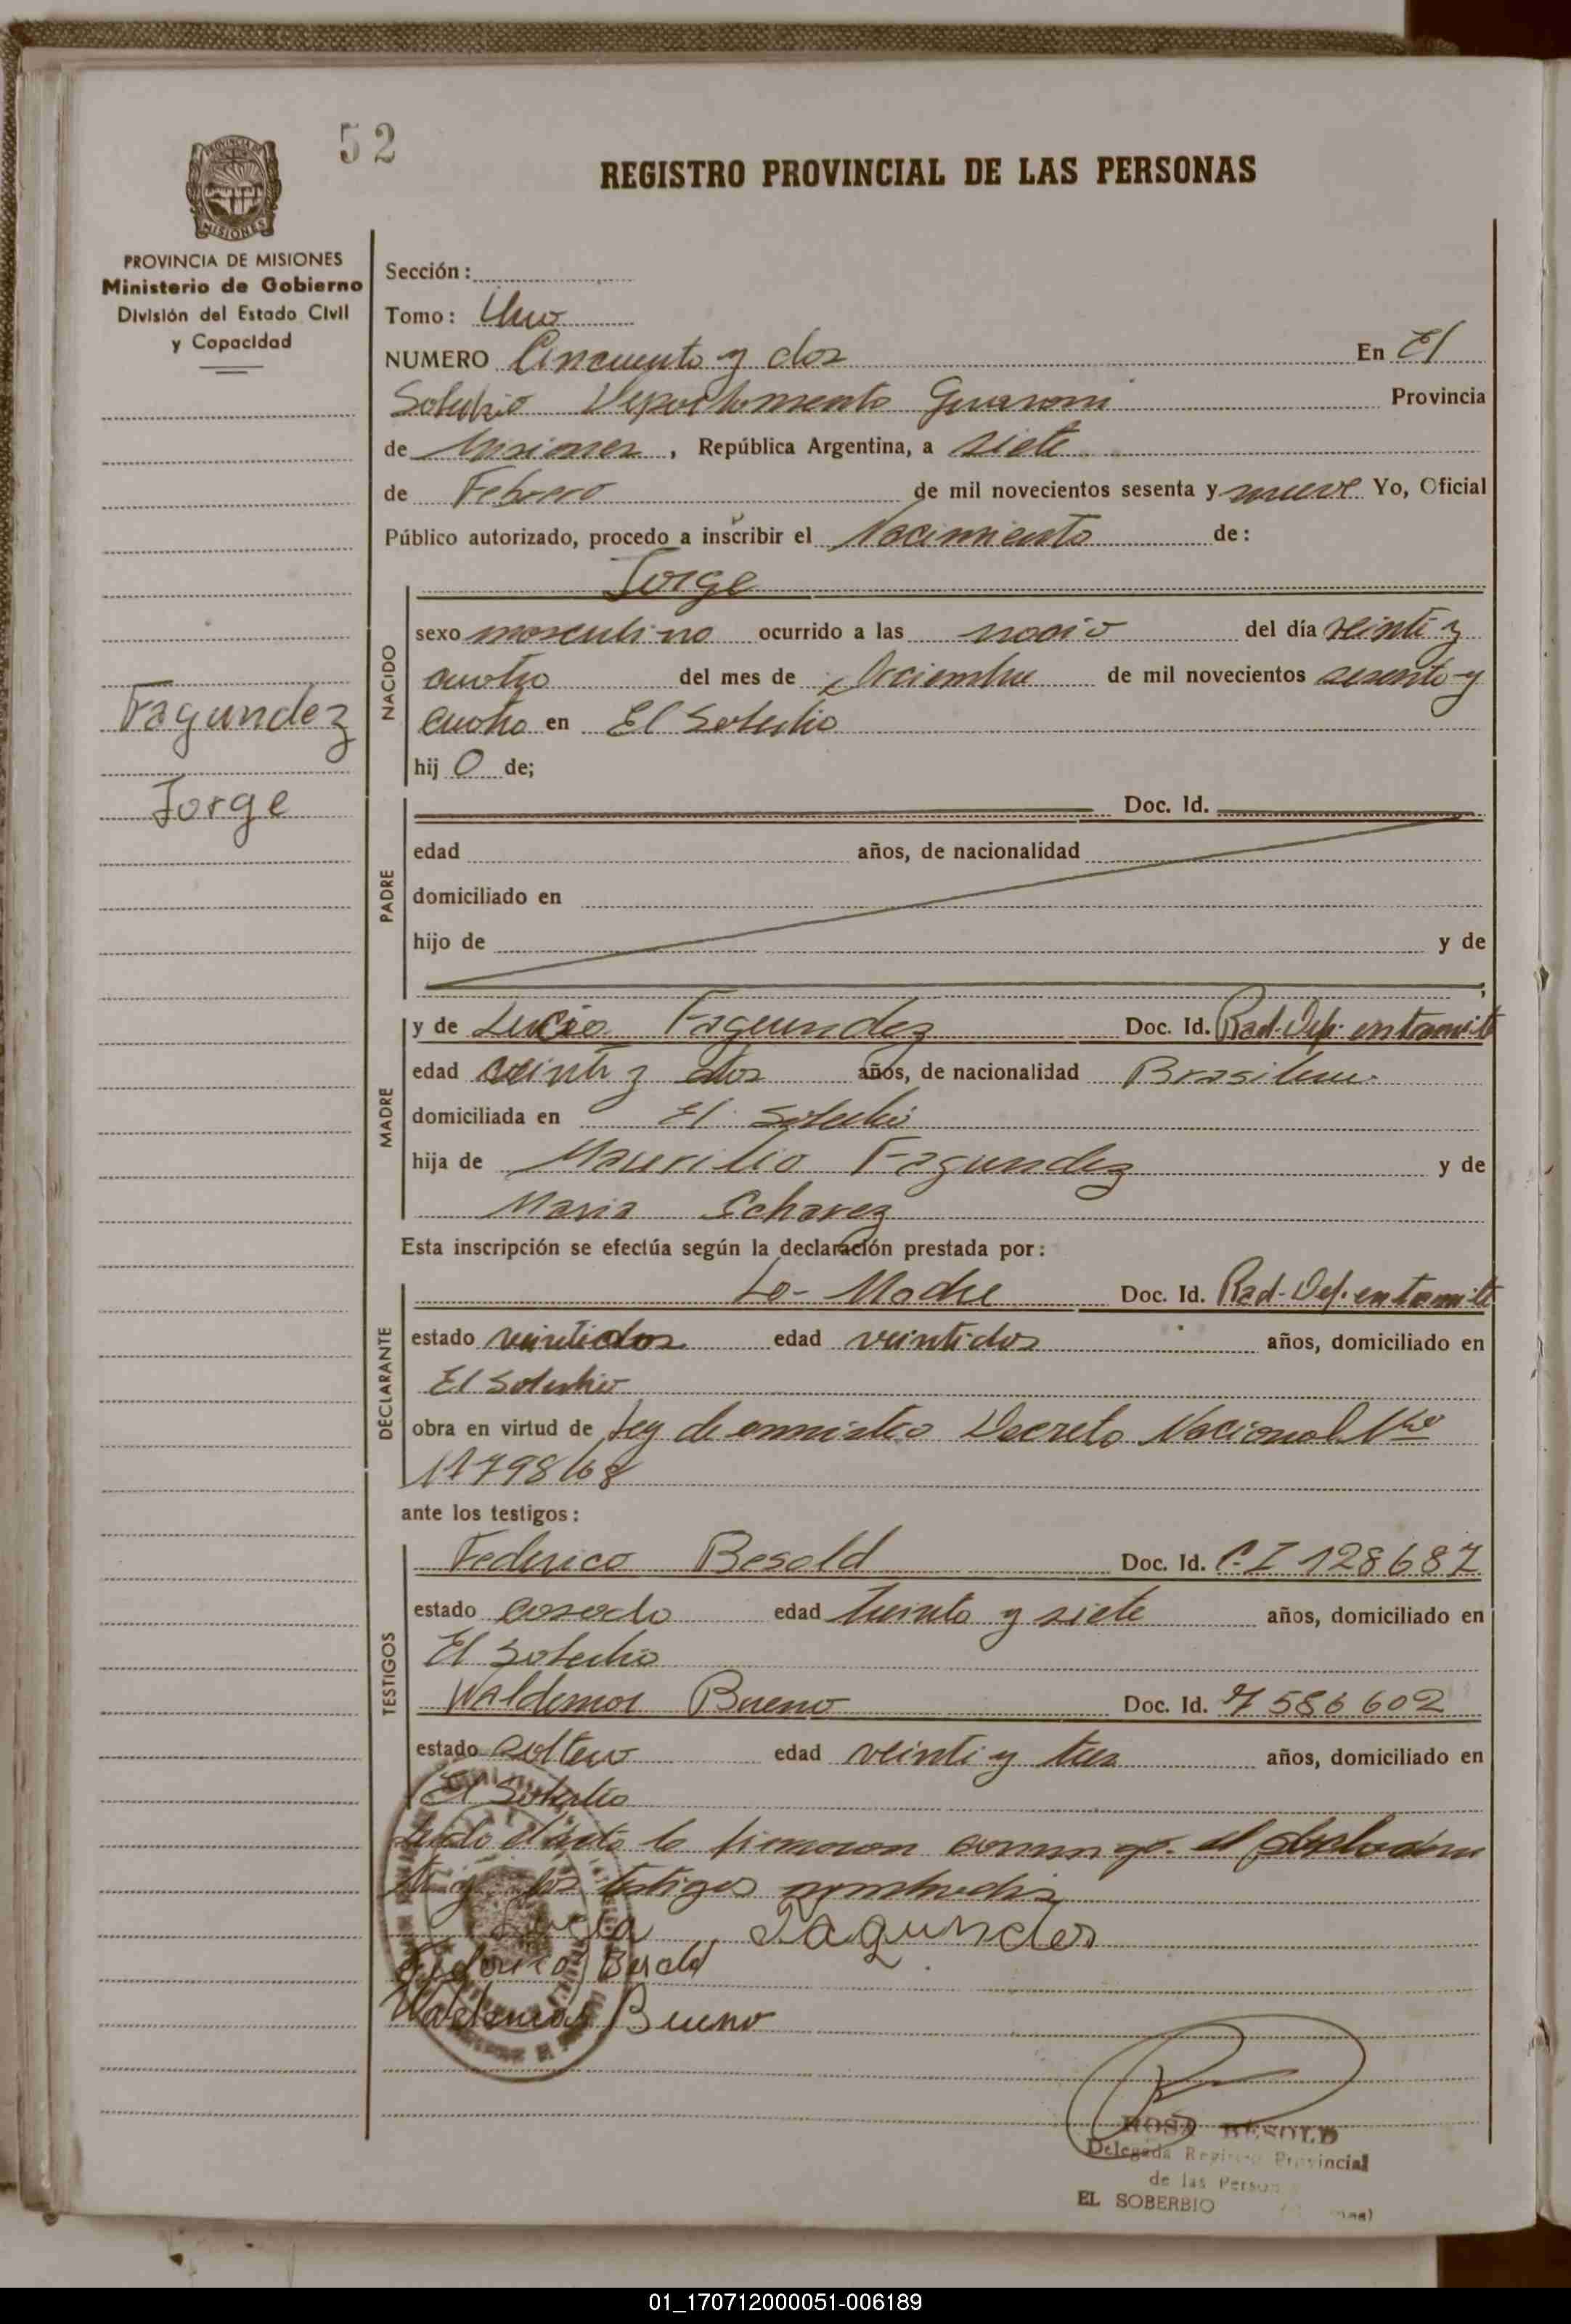 52
REGISTRO PROVINCIAL DE LAS PERSONAS
PROVINCIA DE MISIONES
MISIONES
PROVINCIA DE MISIONES
Ministerio de Gobierno
División del Estado Civil
y Capacidad
Fagundez
Jorge
Sección:
Tomo: Uno
NUMERO Cincuenta y dos En El
Soberbio Departamento Guarani Provincia
de Misiones, República Argentina, a siete
de Febrero de mil novecientos sesenta y nueve Yo, Oficial
Público autorizado, procedo a inscribir el Nacimiento de:
NACIDO
Jorge
sexo masculino ocurrido a las del día veinti y
cuatro del mes de Diciembre de mil novecientos sesenta y
cuatro en El Soberbio
hij o de;
PADRE
Doc. Id.
edad años, de nacionalidad
domiciliado en
hijo de y de
;
MADRE
y de Lucia Fagundez Doc. Id. Rad. Def. en tramite
edad veinti y dos años, de nacionalidad Brasilera
domiciliada en El Soberbio
hija de Maurilio Fagundez y de
Maria Schavez
Esta inscripción se efectúa según la declaración prestada por:
DECLARANTE
La Madre Doc. Id. Rad. Def. en tramite
estado veintidos edad veintidos años, domiciliado en
El Soberbio
obra en virtud de Ley de amnistia Decreto Nacional Nro
1798/68
ante los testigos:
TESTIGOS
Federico Besold Doc. Id. C.I 128687
estado casado edad treinta y siete años, domiciliado en
El Soberbio
Waldemar Bueno Doc. Id. 7586602
estado soltero edad veinti y tres años, domiciliado en
El Soberbio
Leido el acta la firmaron conmigo el declaran
te y los testigos nombrados
Lucia Fagundes
Federico Besold
Waldemar Bueno
ROSA BESOLD
Delegada Registro Provincial
de las Person
EL SOBERBIO
01_170712000051-006189